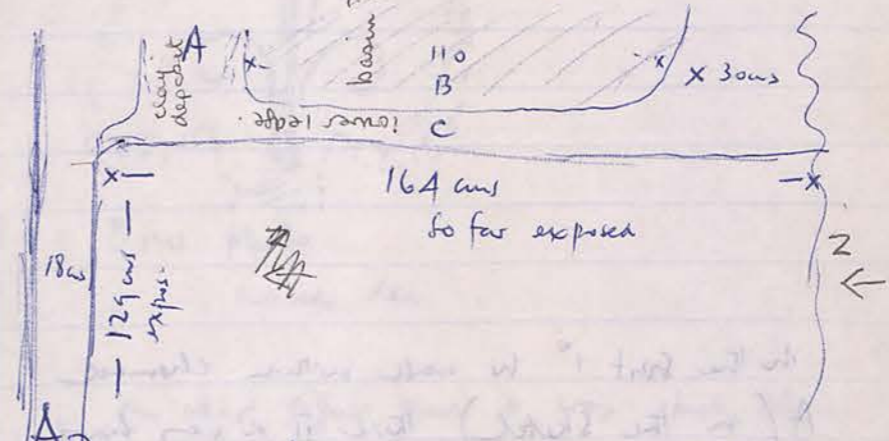 A
clay
deposit
basin
110
B
x 30 cms
inner ledge
C
164 cms
So far exposed
18 cms
129 cms
expos.
N
A